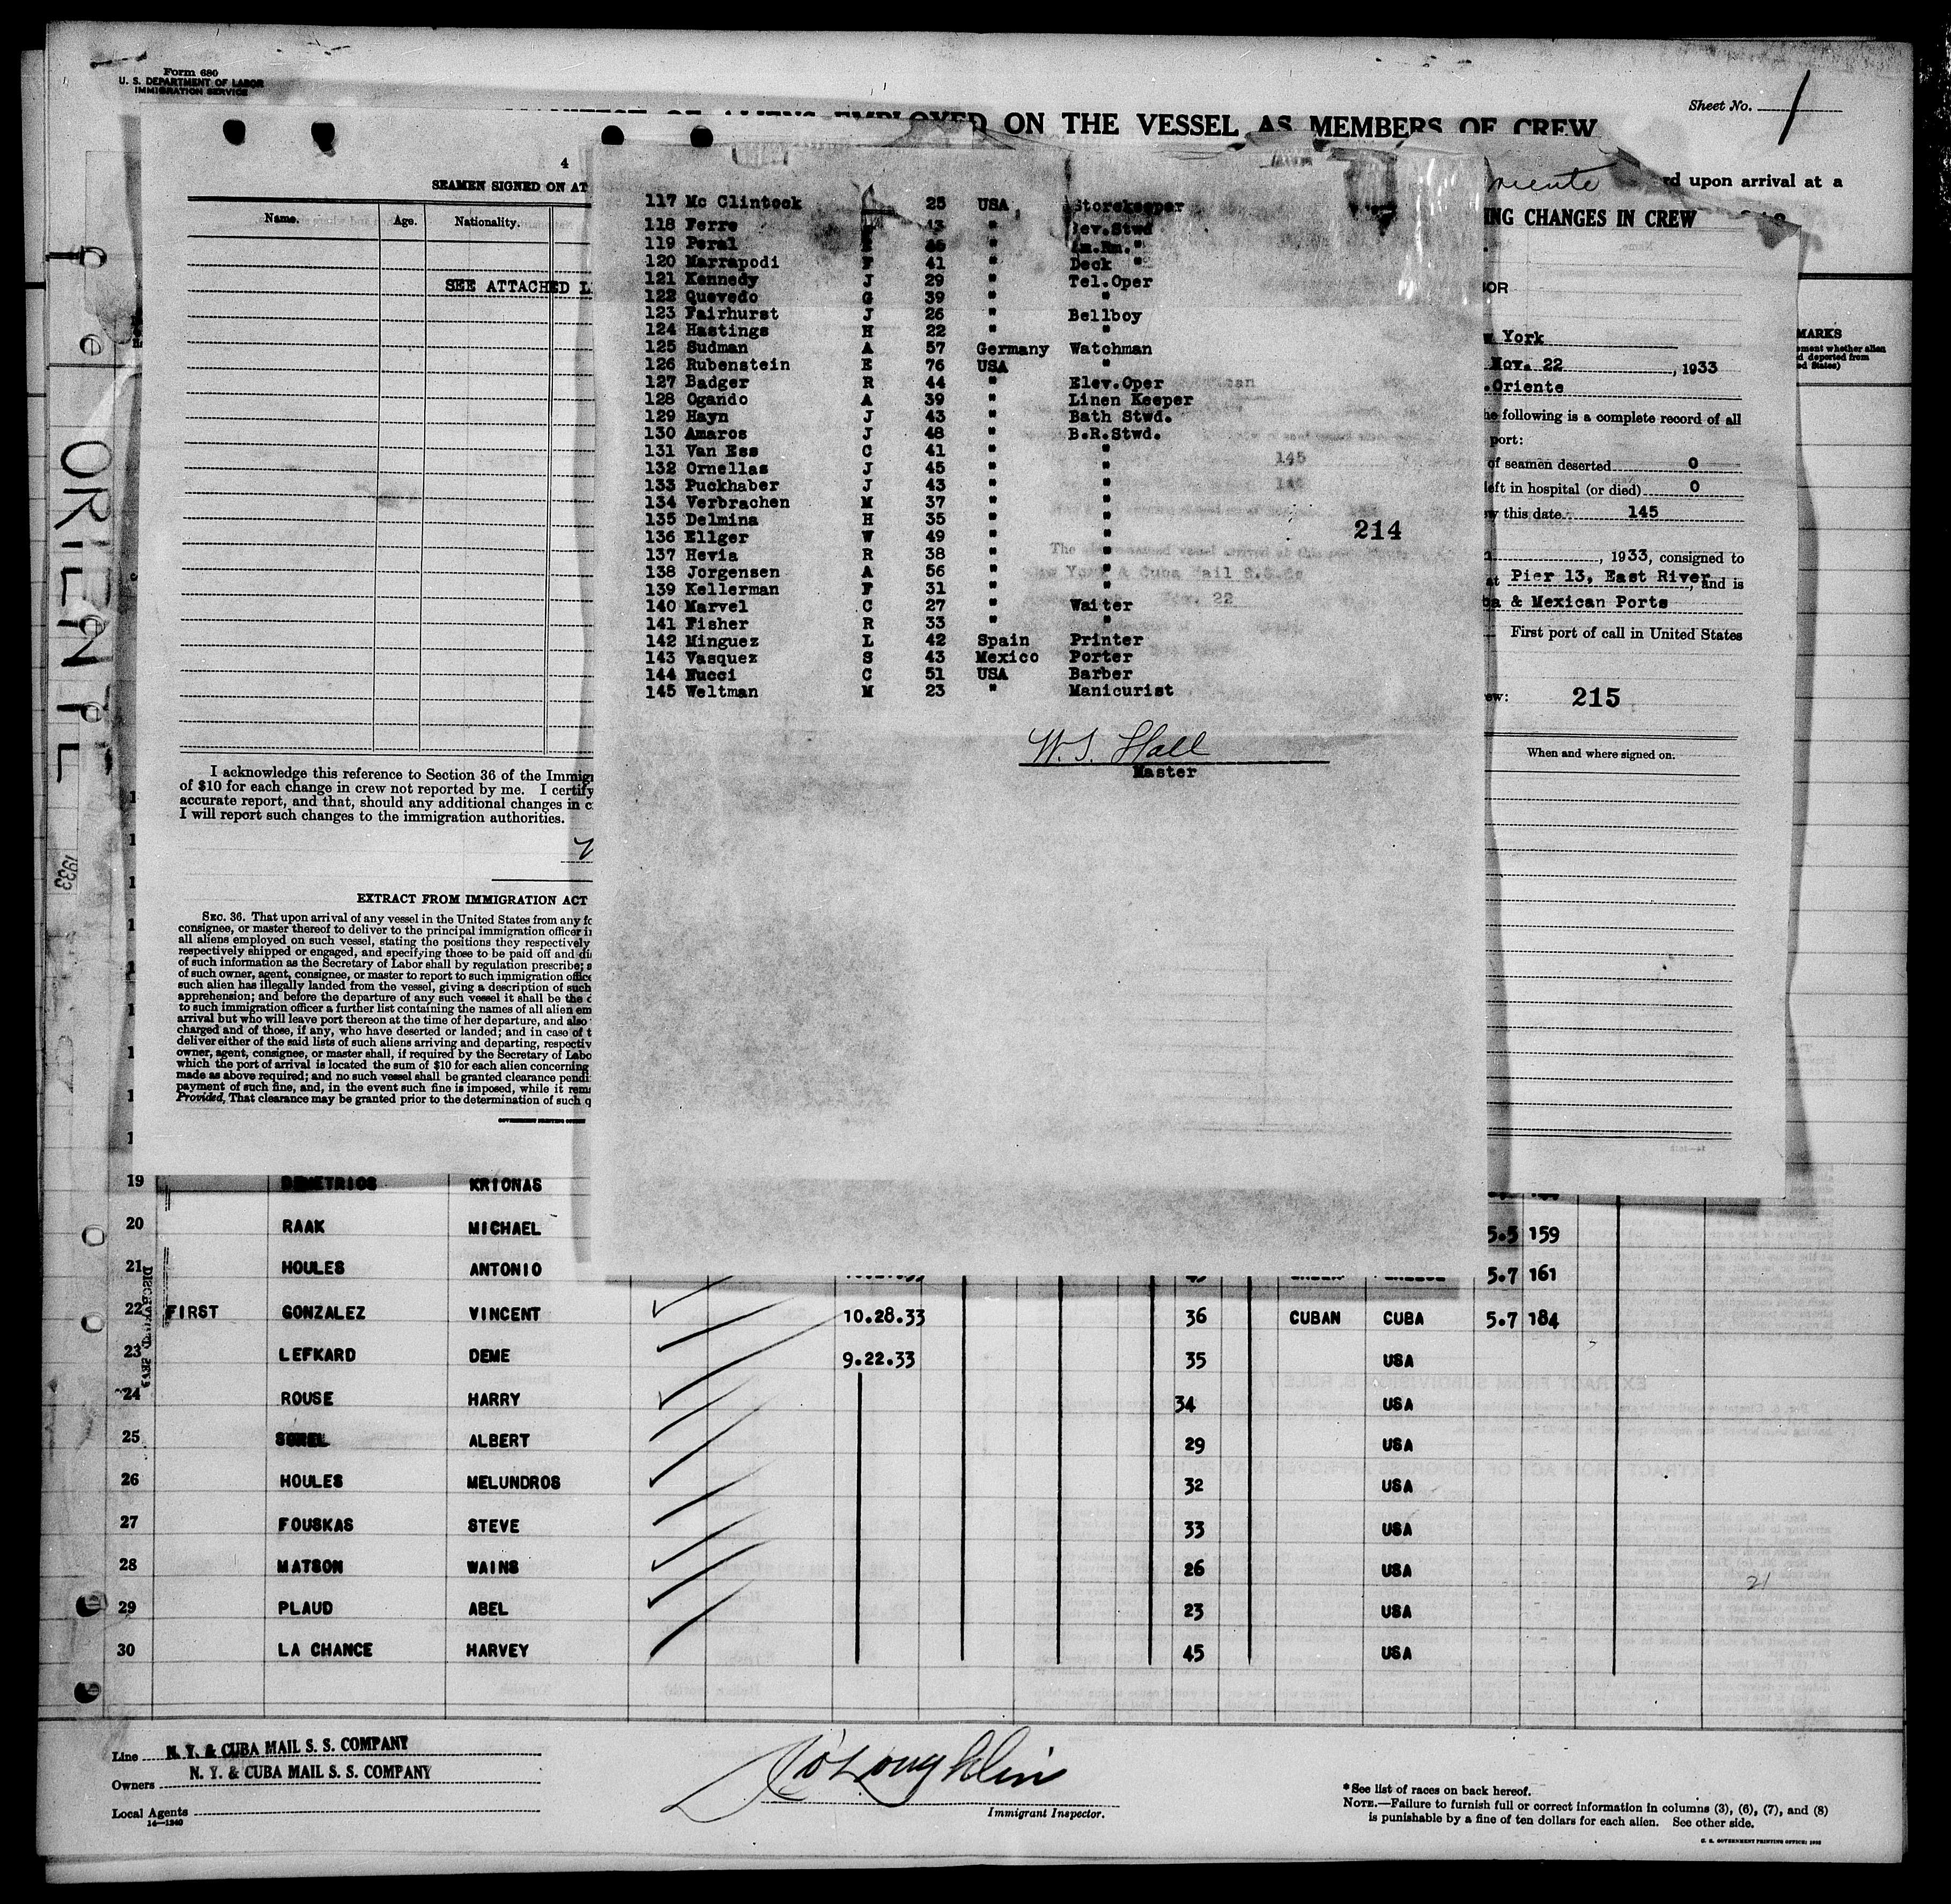 Form 680
U. S. DEPARTMENT OF LABOR
IMMIGRATION SERVICE
Sheet No. 1
ALIENS EMPLOYED ON THE VESSEL AS MEMBERS OF CREW
rd upon arrival at a
4
SEAMEN SIGNED ON AT
Name. Age. Nationality.
SEE ATTACHED L
I acknowledge this reference to Section 36 of the Immig
of $10 for each change in crew not reported by me. I certify
accurate report, and that, should any additional changes in c
I will report such changes to the immigration authorities.
EXTRACT FROM IMMIGRATION ACT
SEC. 36. That upon arrival of any vessel in the United States from any fo
consignee, or master thereof to deliver to the principal immigration officer i
all aliens employed on such vessel, stating the positions they respectively
respectively shipped or engaged, and specifying those to be paid off and di
of such information as the Secretary of Labor shall by regulation prescribe;
of such owner, agent, consignee, or master to report to such immigration office
such alien has illegally landed from the vessel, giving a description of such
apprehension; and before the departure of any such vessel it shall be the d
to such immigration officer a further list containing the names of all alien em
arrival but who will leave port thereon at the time of her departure, and also
charged and of those, if any, who have deserted or landed; and in case of t
deliver either of the said lists of such aliens arriving and departing, respectiv
owner, agent, consignee, or master shall, if required by the Secretary of Labo
which the port of arrival is located the sum of $10 for each alien concerning
made as above required; and no such vessel shall be granted clearance pendi
payment of such fine, and, in the event such fine is imposed, while it rem
Provided, That clearance may be granted prior to the determination of such q
117 Mc Clintock 25 USA Storekeeper
118 Ferre 43 " Dev.Stwd
119 Peral " Sm.Rm."
120 Marrapodi F 41 " Deck "
121 Kennedy J 29 " Tel.Oper
122 Quevedo G 39 " "
123 Fairhurst J 26 " Bellboy
124 Hastings H 22 " "
125 Sudman A 57 Germany Watchman
126 Rubenstein E 76 USA "
127 Badger R 44 " Elev.Oper
128 Ogando A 39 " Linen Keeper
129 Hayn J 43 " Bath Stwd.
130 Amaros J 48 " B.R.Stwd.
131 Van Ess C 41 " "
132 Ornellas J 45 " "
133 Puckhaber J 43 " "
134 Verbrachen M 37 " "
135 Delmina H 35 " "
136 Ellger W 49 " "
137 Hevia R 38 " "
138 Jorgensen A 56 " "
139 Kellerman F 31 " "
140 Marvel C 27 " Waiter
141 Fisher R 33 " "
142 Minguez L 42 Spain Printer
143 Vasquez S 43 Mexico Porter
144 Nucci C 51 USA Barber
145 Weltman M 23 " Manicurist
214
W. S. Hall
Master
ING CHANGES IN CREW
York
Nov. 22, 1933
.Oriente
he following is a complete record of all
port:
of seamen deserted 0
left in hospital (or died) 0
this date 145
, 1933, consigned to
at Pier 13, East River, and is
& Mexican Ports
First port of call in United States
215
When and where signed on.
ORIENTE
1933
19 DEMETRIOS KRIONAS
20 RAAK MICHAEL 5.5 159
21 HOULES ANTONIO 5.7 161
22 FIRST GONZALEZ VINCENT 10.28.33 36 CUBAN CUBA 5.7 184
23 LEFKARD DEME 9.22.33 35 USA
24 ROUSE HARRY 34 USA
25 ALBERT 29 USA
26 HOULES MELUNDROS 32 USA
27 FOUSKAS STEVE 33 USA
28 MATSON WAINS 26 USA
29 PLAUD ABEL 23 USA
30 LA CHANCE HARVEY 45 USA
21
Line N. Y. & CUBA MAIL S. S. COMPANY
Owners N. Y. & CUBA MAIL S. S. COMPANY
Local Agents
14—1240
O'Loughlin
Immigrant Inspector.
*See list of races on back hereof.
NOTE.—Failure to furnish full or correct information in columns (3), (6), (7), and (8)
is punishable by a fine of ten dollars for each alien. See other side.